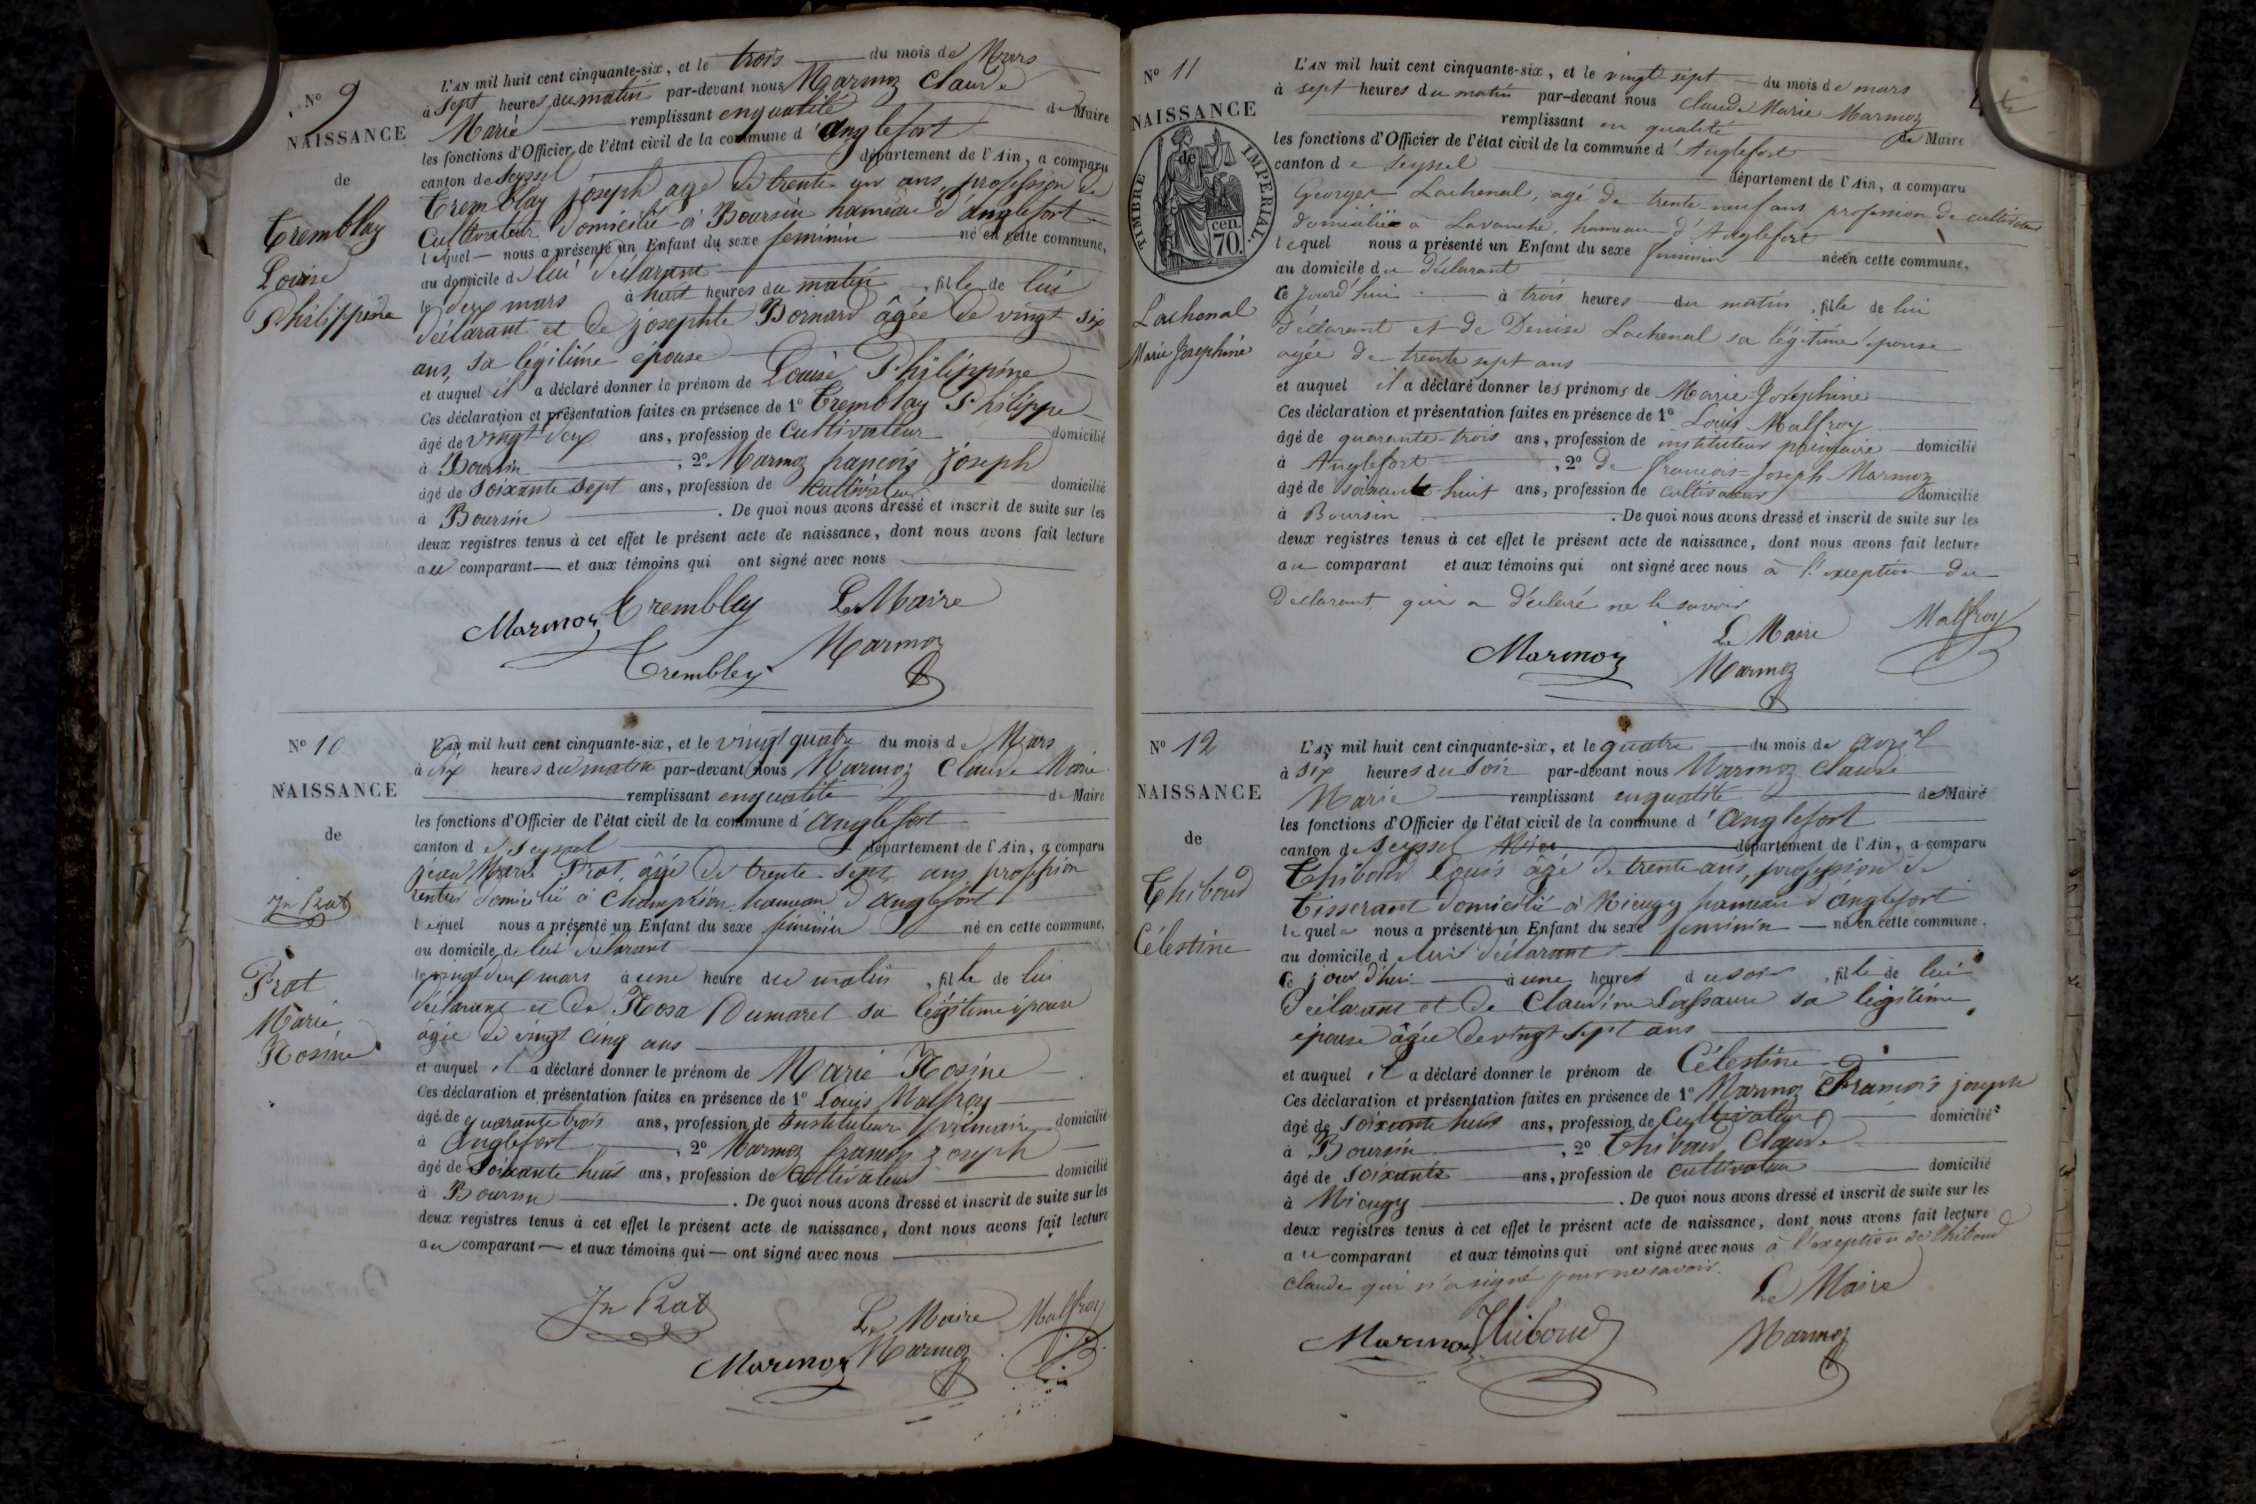 N° 9
NAISSANCE
de
Tremblay
Louise
Philippine
L'AN mil huit cent cinquante-six, et le trois du mois de Mars
à sept heures du matin par-devant nous Marmoz Claude
Marie remplissant en qualité de Maire
les fonctions d'Officier de l'état civil de la commune d'anglefort
canton de Seyssel département de l'Ain, a comparu
Tremblay joseph age de trente un ans, profession de
Cultivateur domicilié à Boursin hameau d'anglefort
lequel nous a présenté un Enfant du sexe feminin né en cette commune,
au domicile de lui déclarant
le deux mars à huit heures du matin, fille de lui
déclarant et de josephte Bornard âgée de vingt six
ans, sa légitime épouse
et auquel il a déclaré donner le prénom de Louise Philippine
Ces déclaration et présentation faites en présence de 1° Tremblay Philippe
âgé de vingt deux ans, profession de Cultivateur domicilié
à Boursin, 2° Marmoz françois joseph
âgé de soixante sept ans, profession de cultivateur domicilié
à Boursin. De quoi nous avons dressé et inscrit de suite sur les
deux registres tenus à cet effet le présent acte de naissance, dont nous avons fait lecture
au comparant et aux témoins qui ont signé avec nous
Marmoz Trembley Le Maire
Trembley Marmoz
N° 10
NAISSANCE
de
Jn Prat
Prat
Marie
Rosine
L'AN mil huit cent cinquante-six, et le vingt quatre du mois de Mars
à dix heures du matin par-devant nous Marmoz Claude Marie
remplissant en qualité de Maire
les fonctions d'Officier de l'état civil de la commune d'anglefort
canton de Seyssel département de l'Ain, a comparu
jean Marie Prat, âgé de trente sept ans, profession
rentier domicilié à Champrion hameau d'anglefort
lequel nous a présenté un Enfant du sexe féminin né en cette commune,
au domicile de lui déclarant
le vingt deux mars à une heure du matin, fille de lui
déclarant et de Rosa Dumarel sa légitime épouse
âgée de vingt cinq ans
et auquel il a déclaré donner le prénom de Marie Rosine
Ces déclaration et présentation faites en présence de 1° Louis Malfroy
âgé de quarante trois ans, profession de Instituteur primaire domicilié
à Anglefort, 2° Marmoz françois joseph
âgé de Soixante huit ans, profession de Cultivateur domicilié
à Boursin. De quoi nous avons dressé et inscrit de suite sur les
deux registres tenus à cet effet le présent acte de naissance, dont nous avons fait lecture
au comparant et aux témoins qui ont signé avec nous
Jn Prat Le Maire Malfroy
Marmoz Marmoz
N° 11
NAISSANCE
de
TIMBRE IMPERIAL.
70. cen.
Lachenal
Marie Josephine
L'AN mil huit cent cinquante-six, et le vingt-sept du mois de mars
à sept heures du matin par-devant nous Claude Marie Marmoz
remplissant en qualité de Maire
les fonctions d'Officier de l'état civil de la commune d'Anglefort
canton de Seyssel département de l'Ain, a comparu
Georges Lachenal, agé de trente-neuf ans, profession de cultivateur
domicilié à Lavanche, hameau d'Anglefort
lequel nous a présenté un Enfant du sexe féminin né en cette commune,
au domicile du déclarant
ce jourd'hui à trois heures du matin, fille de lui
déclarant et de Denise Lachenal sa légitime épouse
agée de trente sept ans
et auquel il a déclaré donner les prénoms de Marie-Josephine
Ces déclaration et présentation faites en présence de 1° Louis Malfroy
âgé de quarante-trois ans, profession de instituteur primaire domicilié
à Anglefort, 2° de françois-Joseph Marmoz
âgé de soixante-huit ans, profession de cultivateur domicilié
à Boursin. De quoi nous avons dressé et inscrit de suite sur les
deux registres tenus à cet effet le présent acte de naissance, dont nous avons fait lecture
au comparant et aux témoins qui ont signé avec nous à l'exception du
Déclarant qui a déclaré ne le savoir
Marmoz Le Maire Malfroy
Marmoz
N° 12
NAISSANCE
de
Thiboud
Célestine
L'AN mil huit cent cinquante-six, et le quatre du mois de avril
à six heures du soir par-devant nous Marmoz Claude
Marie remplissant en qualité de Maire
les fonctions d'Officier de l'état civil de la commune d'anglefort
canton de Seyssel département de l'Ain, a comparu
Thiboud Louis âgé de trente ans, profession de
Tisserant domicilié à Mieugy hameau d'anglefort
lequel nous a présenté un Enfant du sexe feminin né en cette commune,
au domicile de lui déclarant
Ce jour d'hui à une heures du soir, fille de lui
déclarant et de Claudine Lassauve sa légitime
épouse âgée de vingt sept ans
et auquel il a déclaré donner le prénom de Célestine
Ces déclaration et présentation faites en présence de 1° Marmoz François joseph
âgé de soixante huit ans, profession de Cultivateur domicilié
à Boursin, 2° Thiboud Claude
âgé de soixante ans, profession de cultivateur domicilié
à Mieugy. De quoi nous avons dressé et inscrit de suite sur les
deux registres tenus à cet effet le présent acte de naissance, dont nous avons fait lecture
au comparant et aux témoins qui ont signé avec nous à l'exception de Thiboud
Claude qui n'a signé pour ne savoir.
Marmoz Thiboud Le Maire
Marmoz